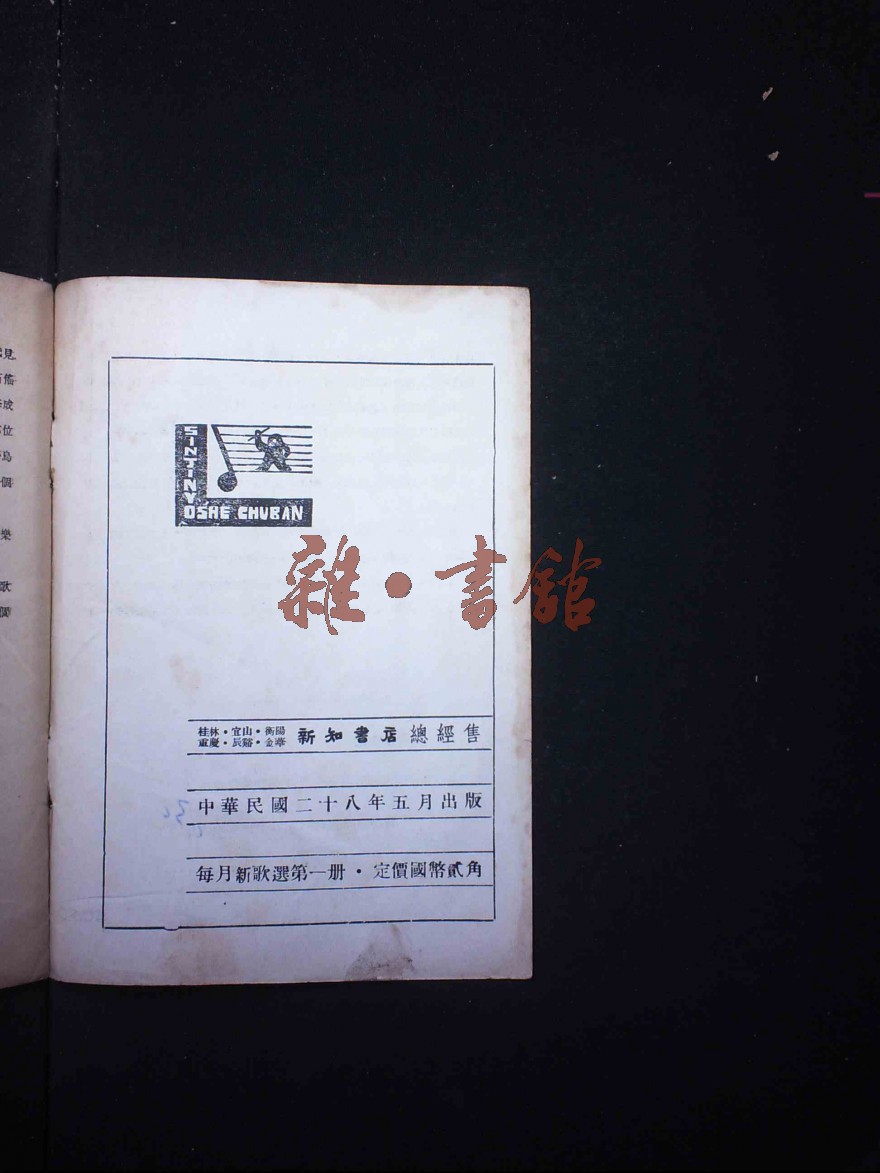 見
成
位
個
樂
歌
SINTINYOSHE CHUBAN
雜·書館
桂林·宜山·衡陽
重慶·辰谿·金華
新知書店總經售
中華民國二十八年五月出版
每月新歌選第一册·定價國幣貳角